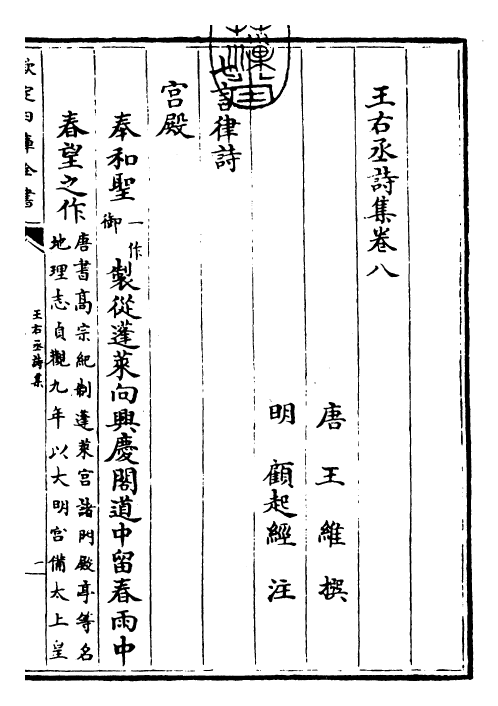 王右丞詩集卷八
唐 王維 撰
明 顧起經 注
七言律詩
宮殿
奉和聖一作御製從蓬萊向興慶閣道中留春雨中
春望之作唐書高宗紀制蓬萊宮諸門殿亭等名
地理志貞觀九年以大明宮備太上皇
欽定四庫全書
王右丞詩集
一